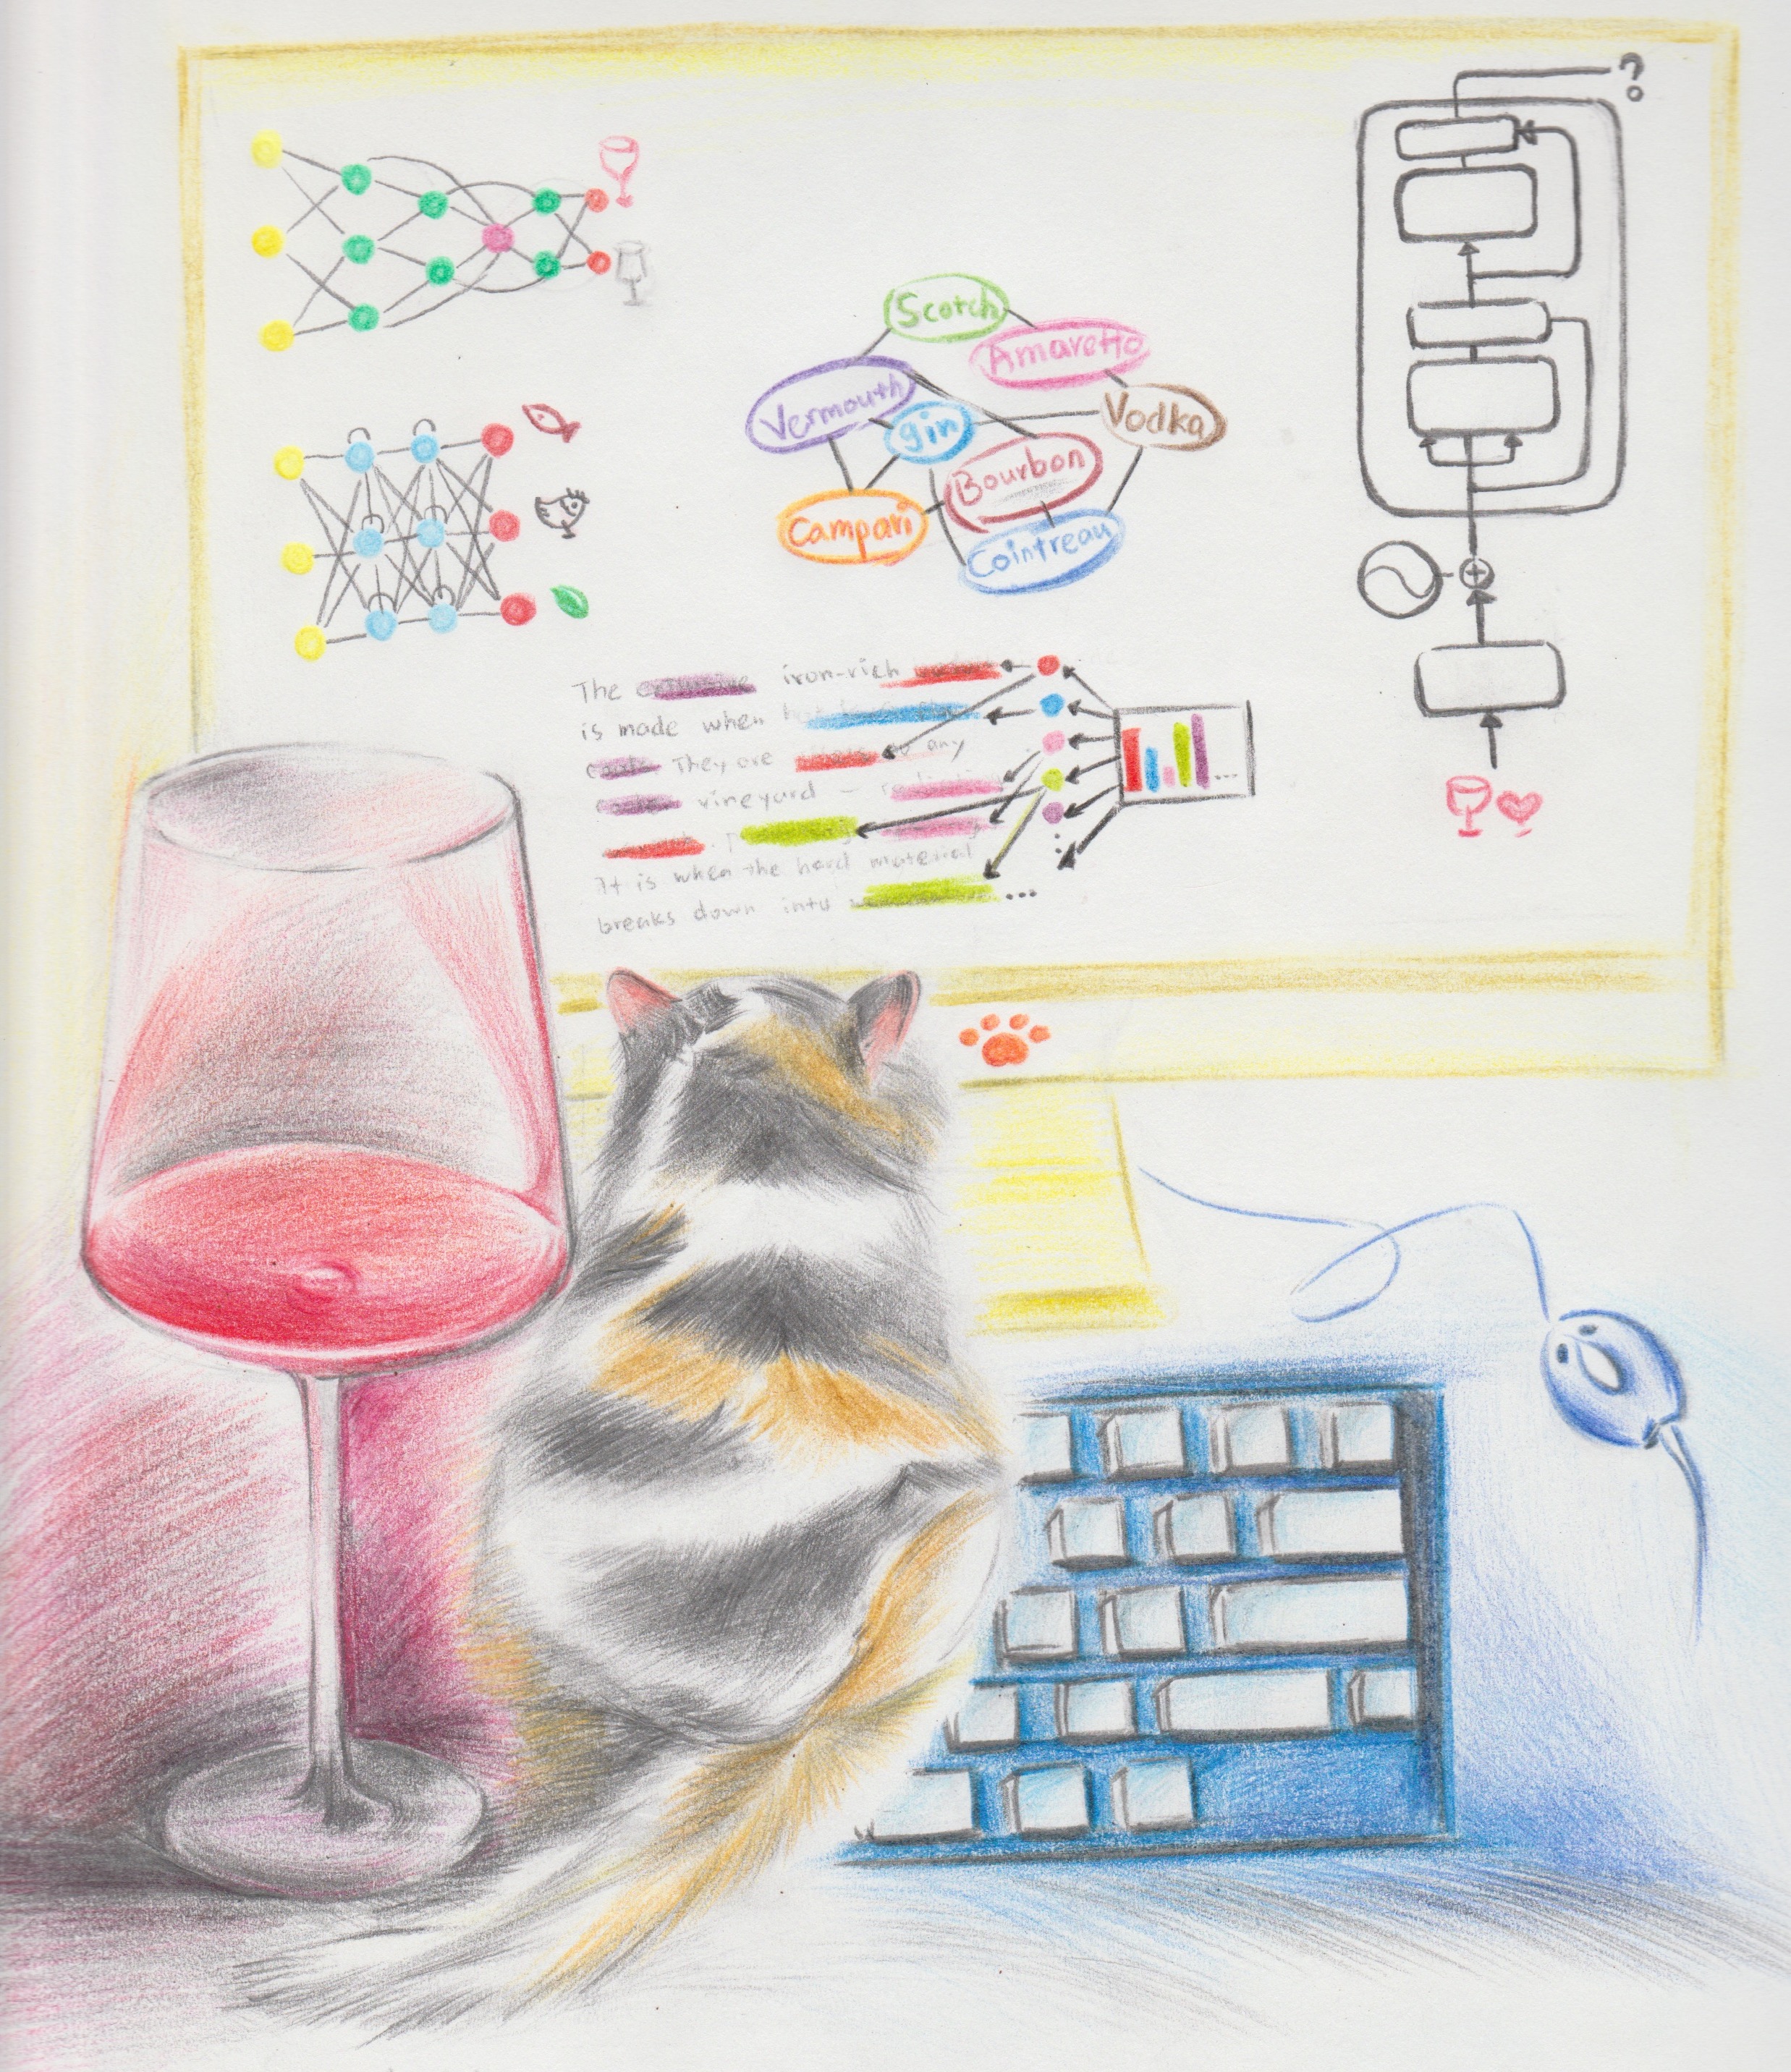 ?
Scotch
Amaretto
Vermouth
gin
Vodka
Bourbon
Campari
Cointreau
The iron-rich
is made when
They are any
vineyard –
It is when the hard material
breaks down into ...